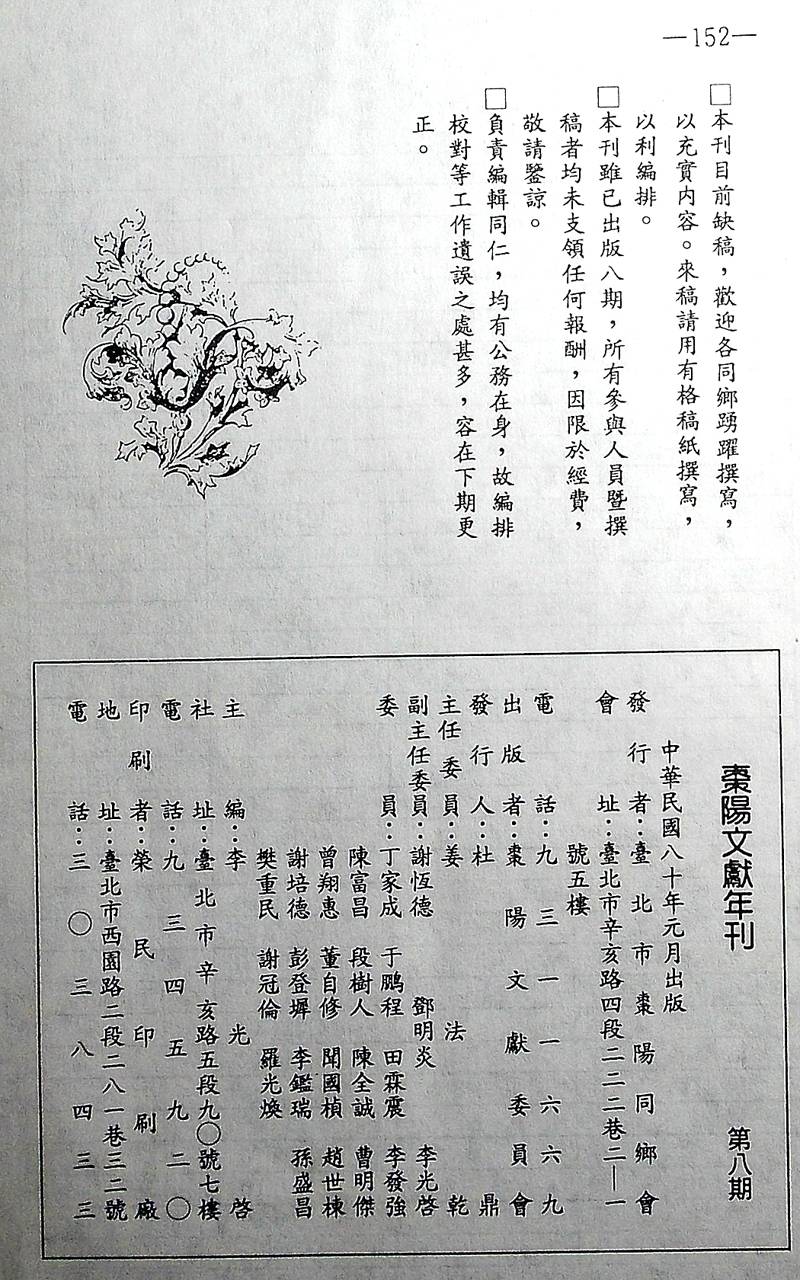 —152—
□本刊目前缺稿，歡迎各同鄉踴躍撰寫，
以充實內容。來稿請用有格稿紙撰寫，
以利編排。
□本刊雖已出版八期，所有參與人員暨撰
稿者均未支領任何報酬，因限於經費，
敬請鑒諒。
□負責編輯同仁，均有公務在身，故編排
校對等工作遺誤之處甚多，容在下期更
正。
棗陽文獻年刊 第八期
中華民國八十年元月出版
發行者：臺北市棗陽同鄉會
會址：臺北市辛亥路四段二二二巷二—一
號五樓
電話：九三一一六六九
出版者：棗陽文獻委員會
發行人：杜法鼎
主任委員：姜乾
副主任委員：謝恆德 鄧明炎 李光啓
委員：丁家成 于鵬程 田霖震 李發強
陳富昌 段樹人 陳全誠 曹明傑
曾翔惠 董自修 聞國楨 趙世棟
謝培德 彭登墀 李鑑瑞 孫盛昌
樊重民 謝冠倫 羅光煥
主編：李光啓
社址：臺北市辛亥路五段九〇號七樓
電話：九三四五九二〇
印刷者：榮民印刷廠
地址：臺北市西園路二段二八一巷三二號
電話：三〇三八四三三